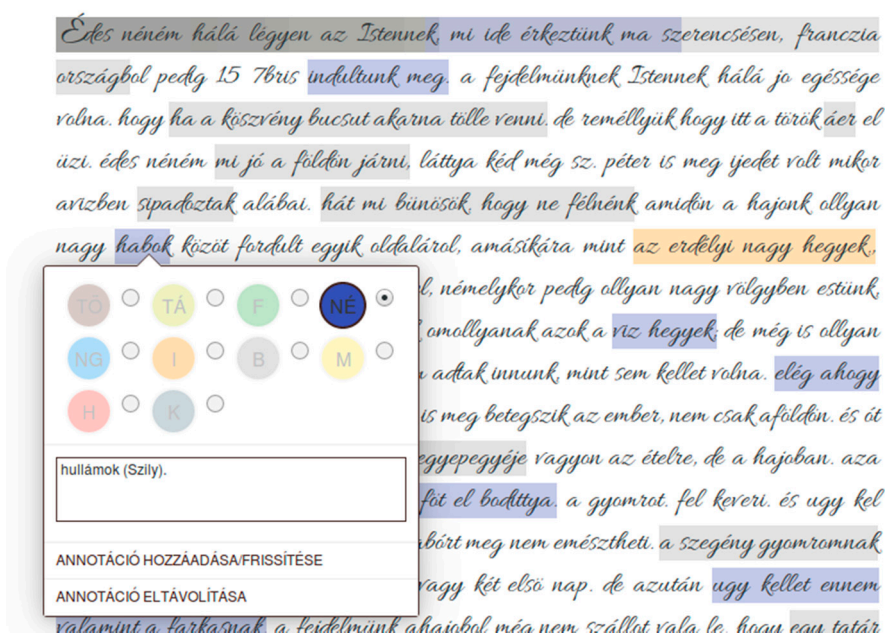 Édes néném hálá légyen az Istennek, mi ide érkeztünk ma szerencsésen, franczia
országbol pedig 15 7bris indultunk meg. a fejdelmünknek Istennek hálá jo egéssége
volna. hogy ha a köszvény bucsut akarna tölle venni. de reméllyük hogy itt a török áer el
üzi. édes néném mi jó a földön járni, láttya kéd még sz. péter is meg ijedet volt mikor
a vizben sipadoztak alábai. hát mi bünösök, hogy ne félnénk amidön a hajonk ollyan
nagy habok közöt fordult egyik oldalárol, amásikára mint az erdélyi nagy hegyek,,
némelykor pedig ollyan nagy völgyben estünk,
omollyanak azok a viz hegyek; de még is ollyan
adtak innunk, mint sem kellet volna. elég ahogy
is meg betegszik az ember, nem csak aföldön. és ót
egyepegyéje vagyon az ételre, de a hajoban. aza
föt el bodittya. a gyomrot. fel keveri. és ugy kel
meg nem emésztheti. a szegény gyomromnak
vagy két elsö nap. de azután ugy kellet ennem
valamint a farkasnak a fejdelmünk ahajobol még nem szállot vala le. hogy egy tatár
TÖ TÁ F NÉ
NG I B M
H K
hullámok (Szily).
ANNOTÁCIÓ HOZZÁADÁSA/FRISSÍTÉSE
ANNOTÁCIÓ ELTÁVOLÍTÁSA